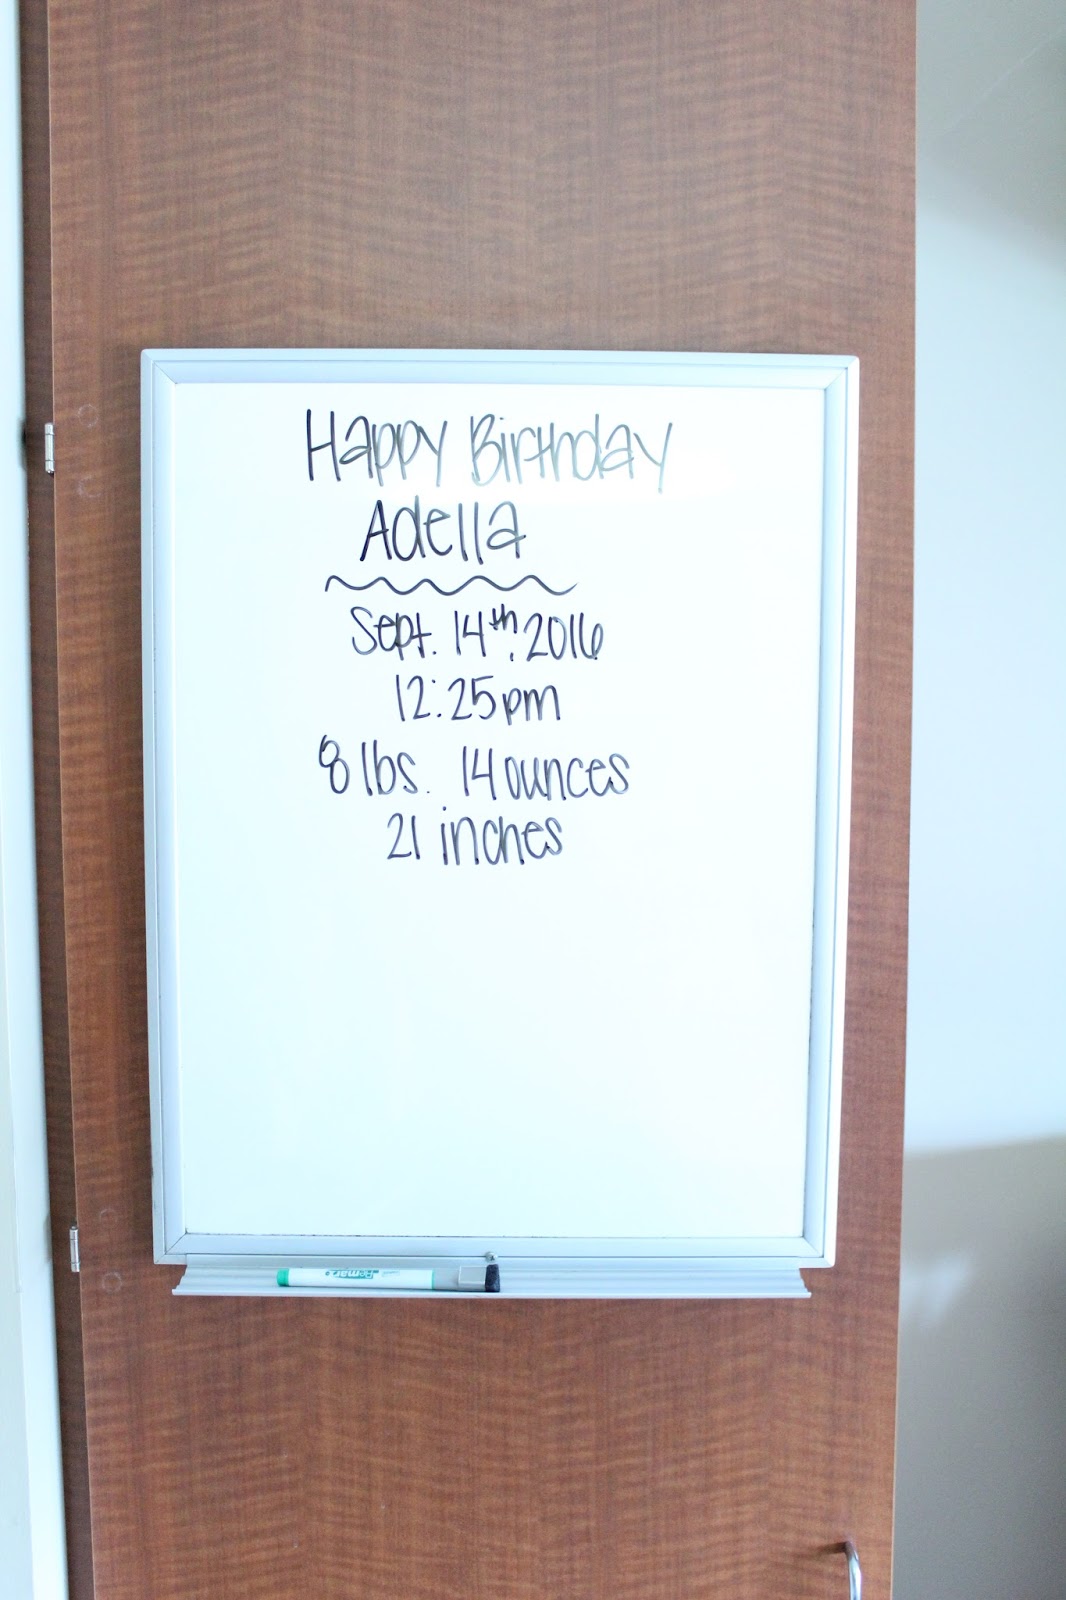 Happy Birthday
Adella
Sept. 14th, 2016
12:25pm
8 lbs. 14 ounces
21 inches